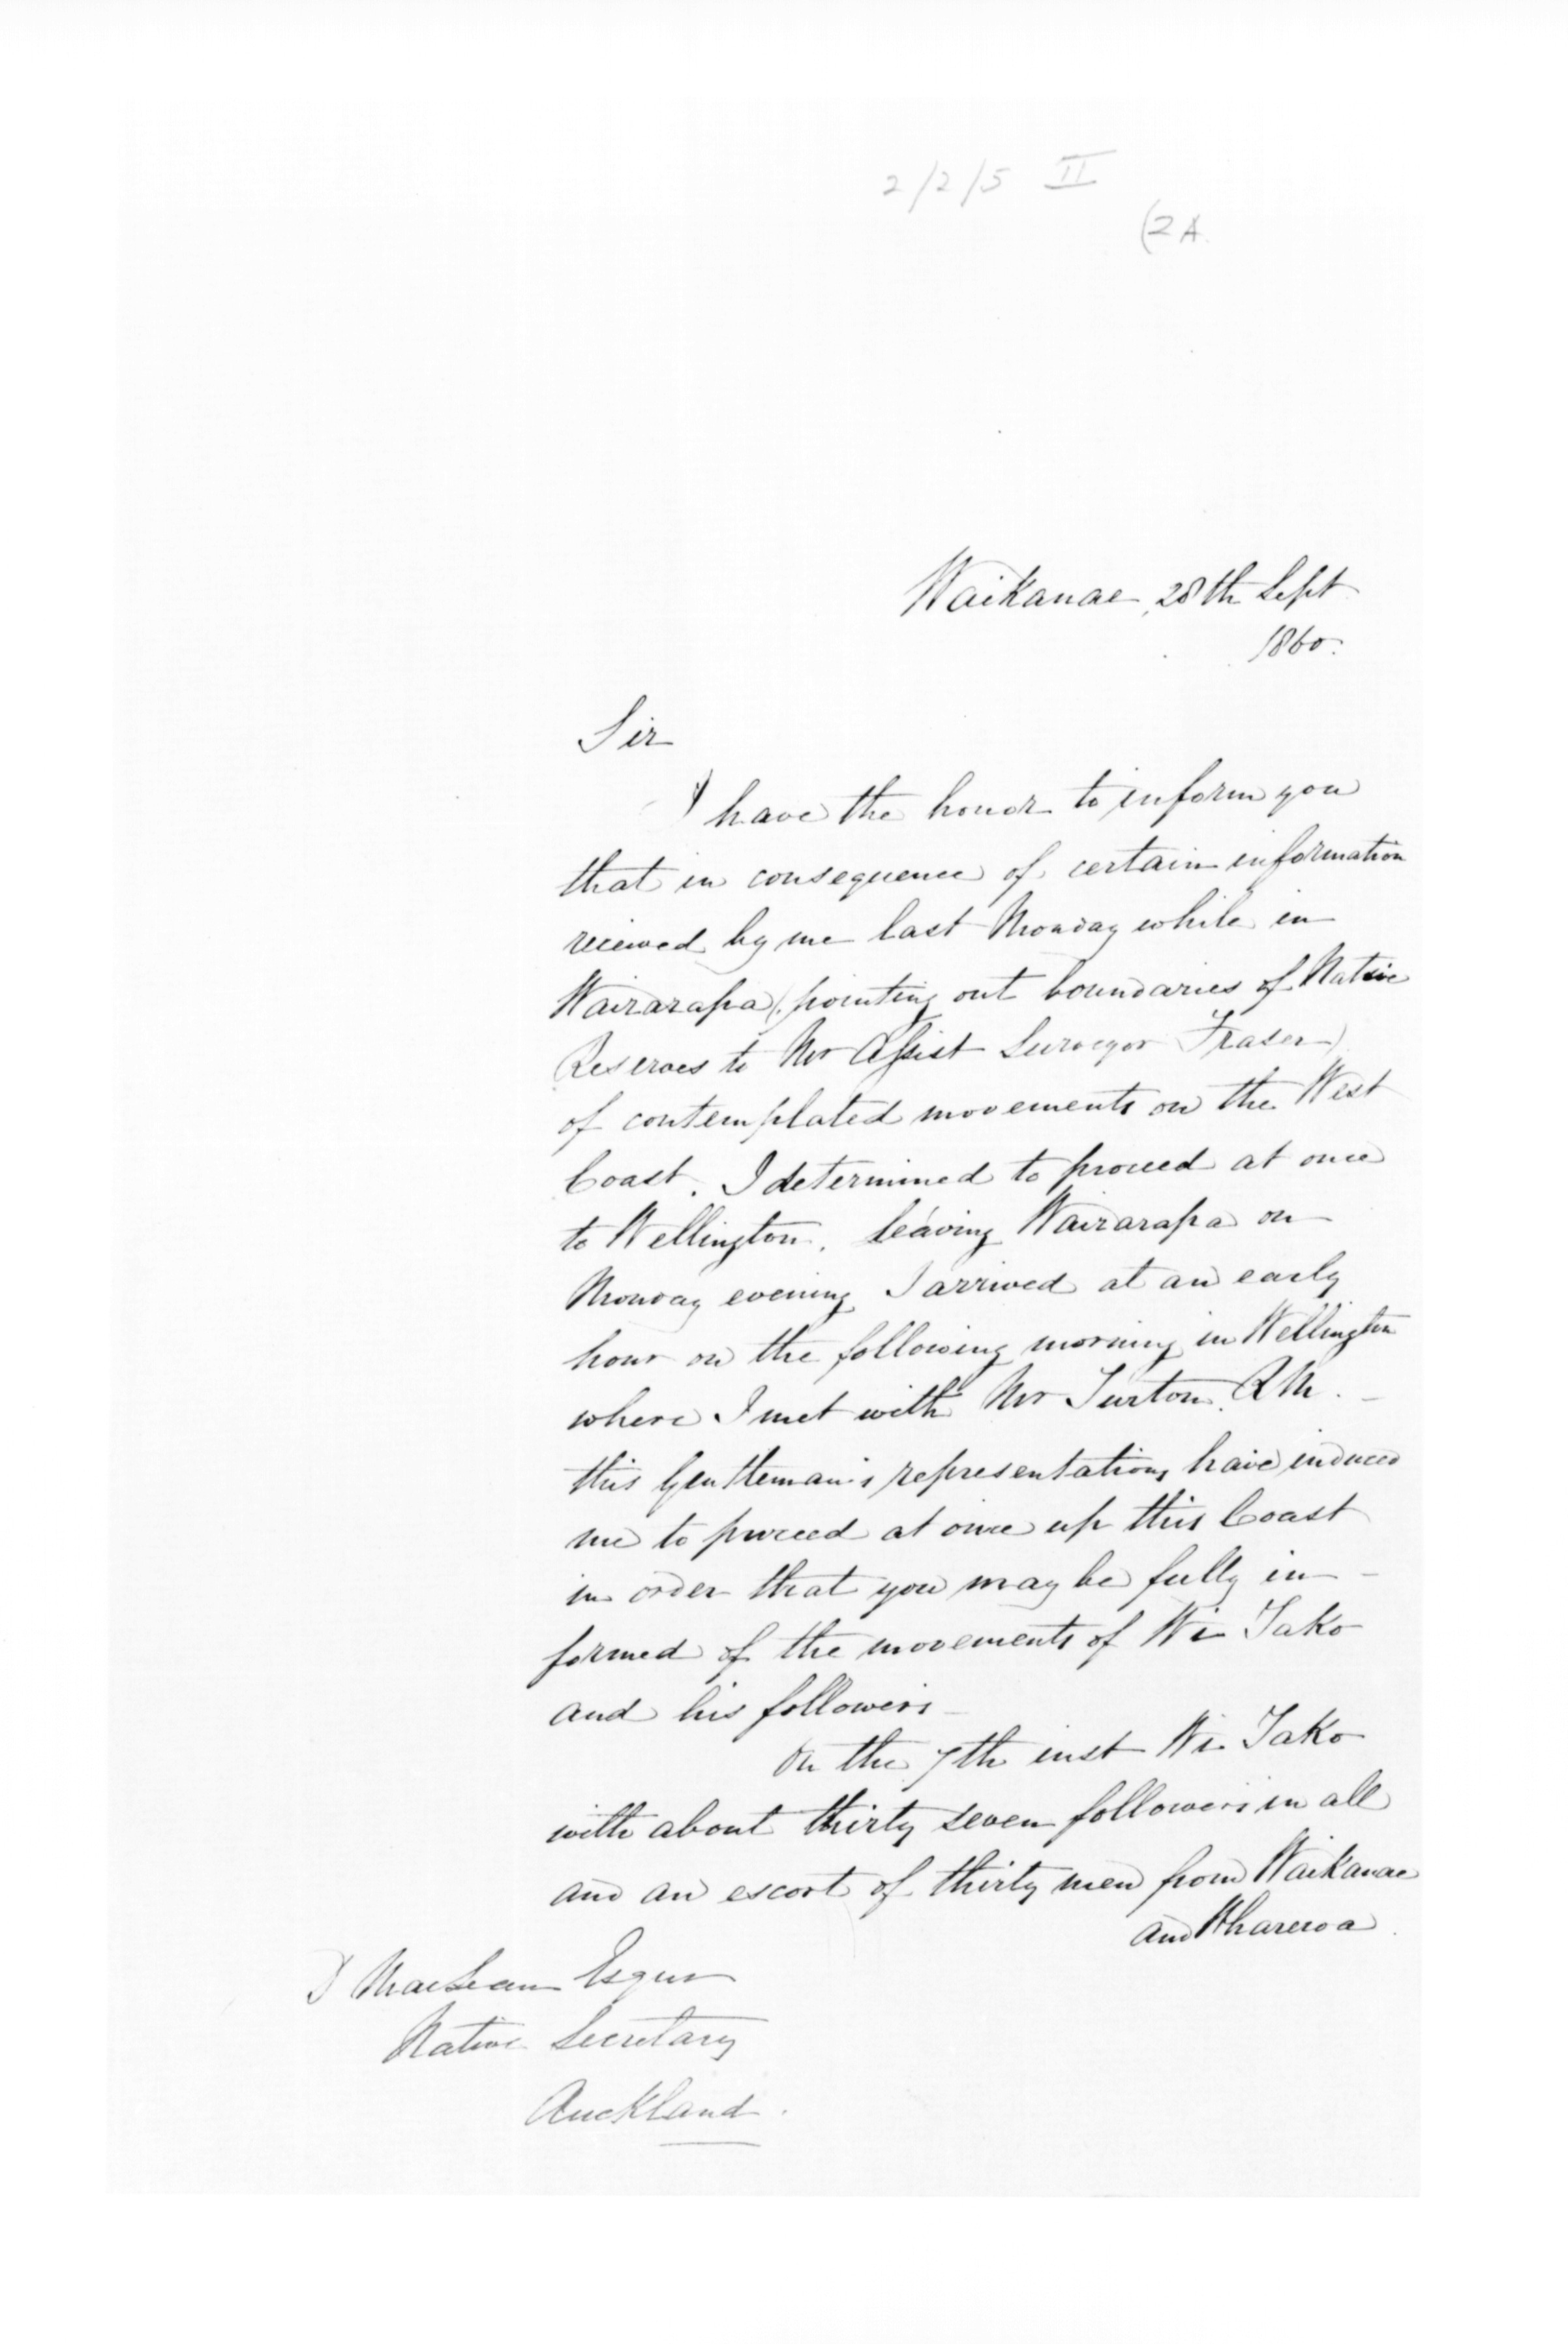 2/2/5 II
(2A.
Waikanae, 28th Sept
1860.
Sir
I have the honor to inform you
that in consequence of certain information
received by me last Monday while in
Wairarapa (pointing out boundaries of Native
Reserves to Mr Assist Surveyor Fraser)
of contemplated movements on the West
Coast. I determined to proceed at once
to Wellington. Leaving Wairarapa on
Monday evening I arrived at an early
hour on the following morning in Wellington
where I met with Mr Turton. R.M. -
this Gentleman's representations have induced
me to proceed at once up this Coast
in order that you may be fully in -
formed of the movements of Wi Tako
and his followers -
On the 7th inst Wi Tako
with about thirty seven followers in all
and an escort of thirty men from Waikanae
and Whareroa.
D MacLean Esqur
Native Secretary
Auckland.